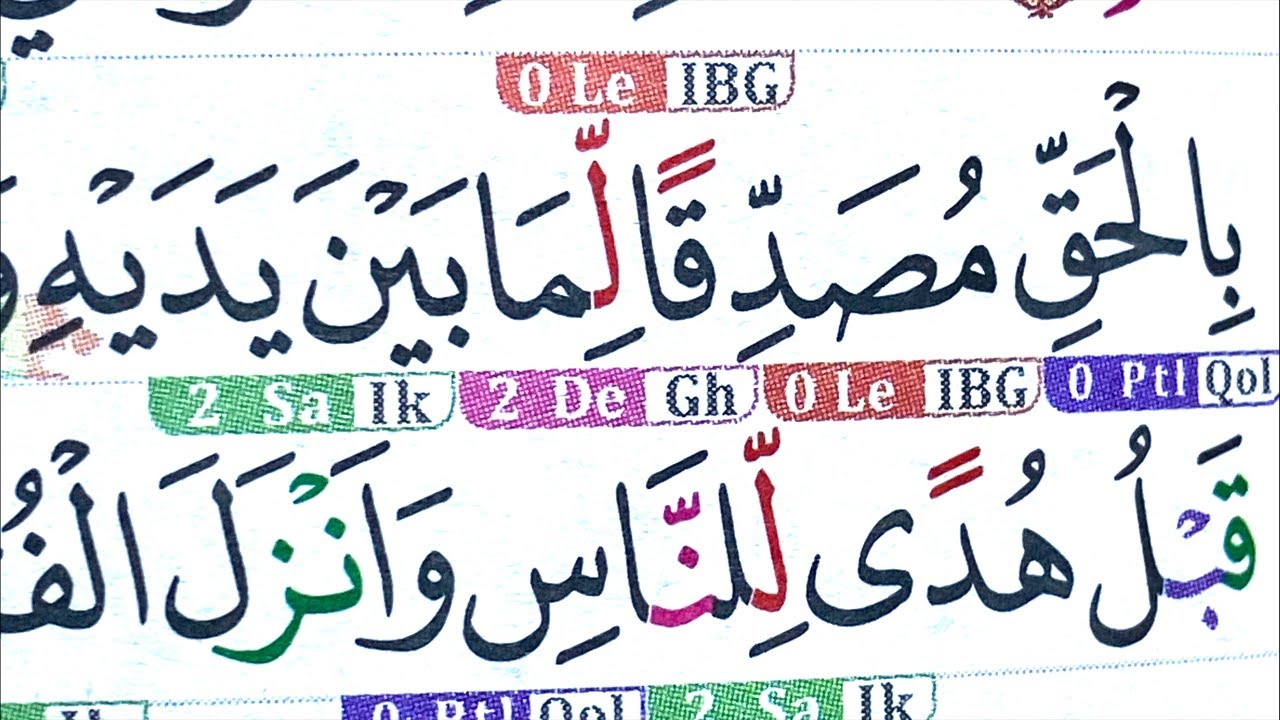 0 Le IBG
بِالْحَقِّ مُصَدِّقًا لِّمَا بَيْنَ يَدَيْهِ
2 Sa Ik 2 De Gh 0 Le IBG 0 Ptl Qol
قَبْلُ هُدًى لِّلنَّاسِ وَاَنْزَلَ
0 Ptl Qol 2 Sa Ik